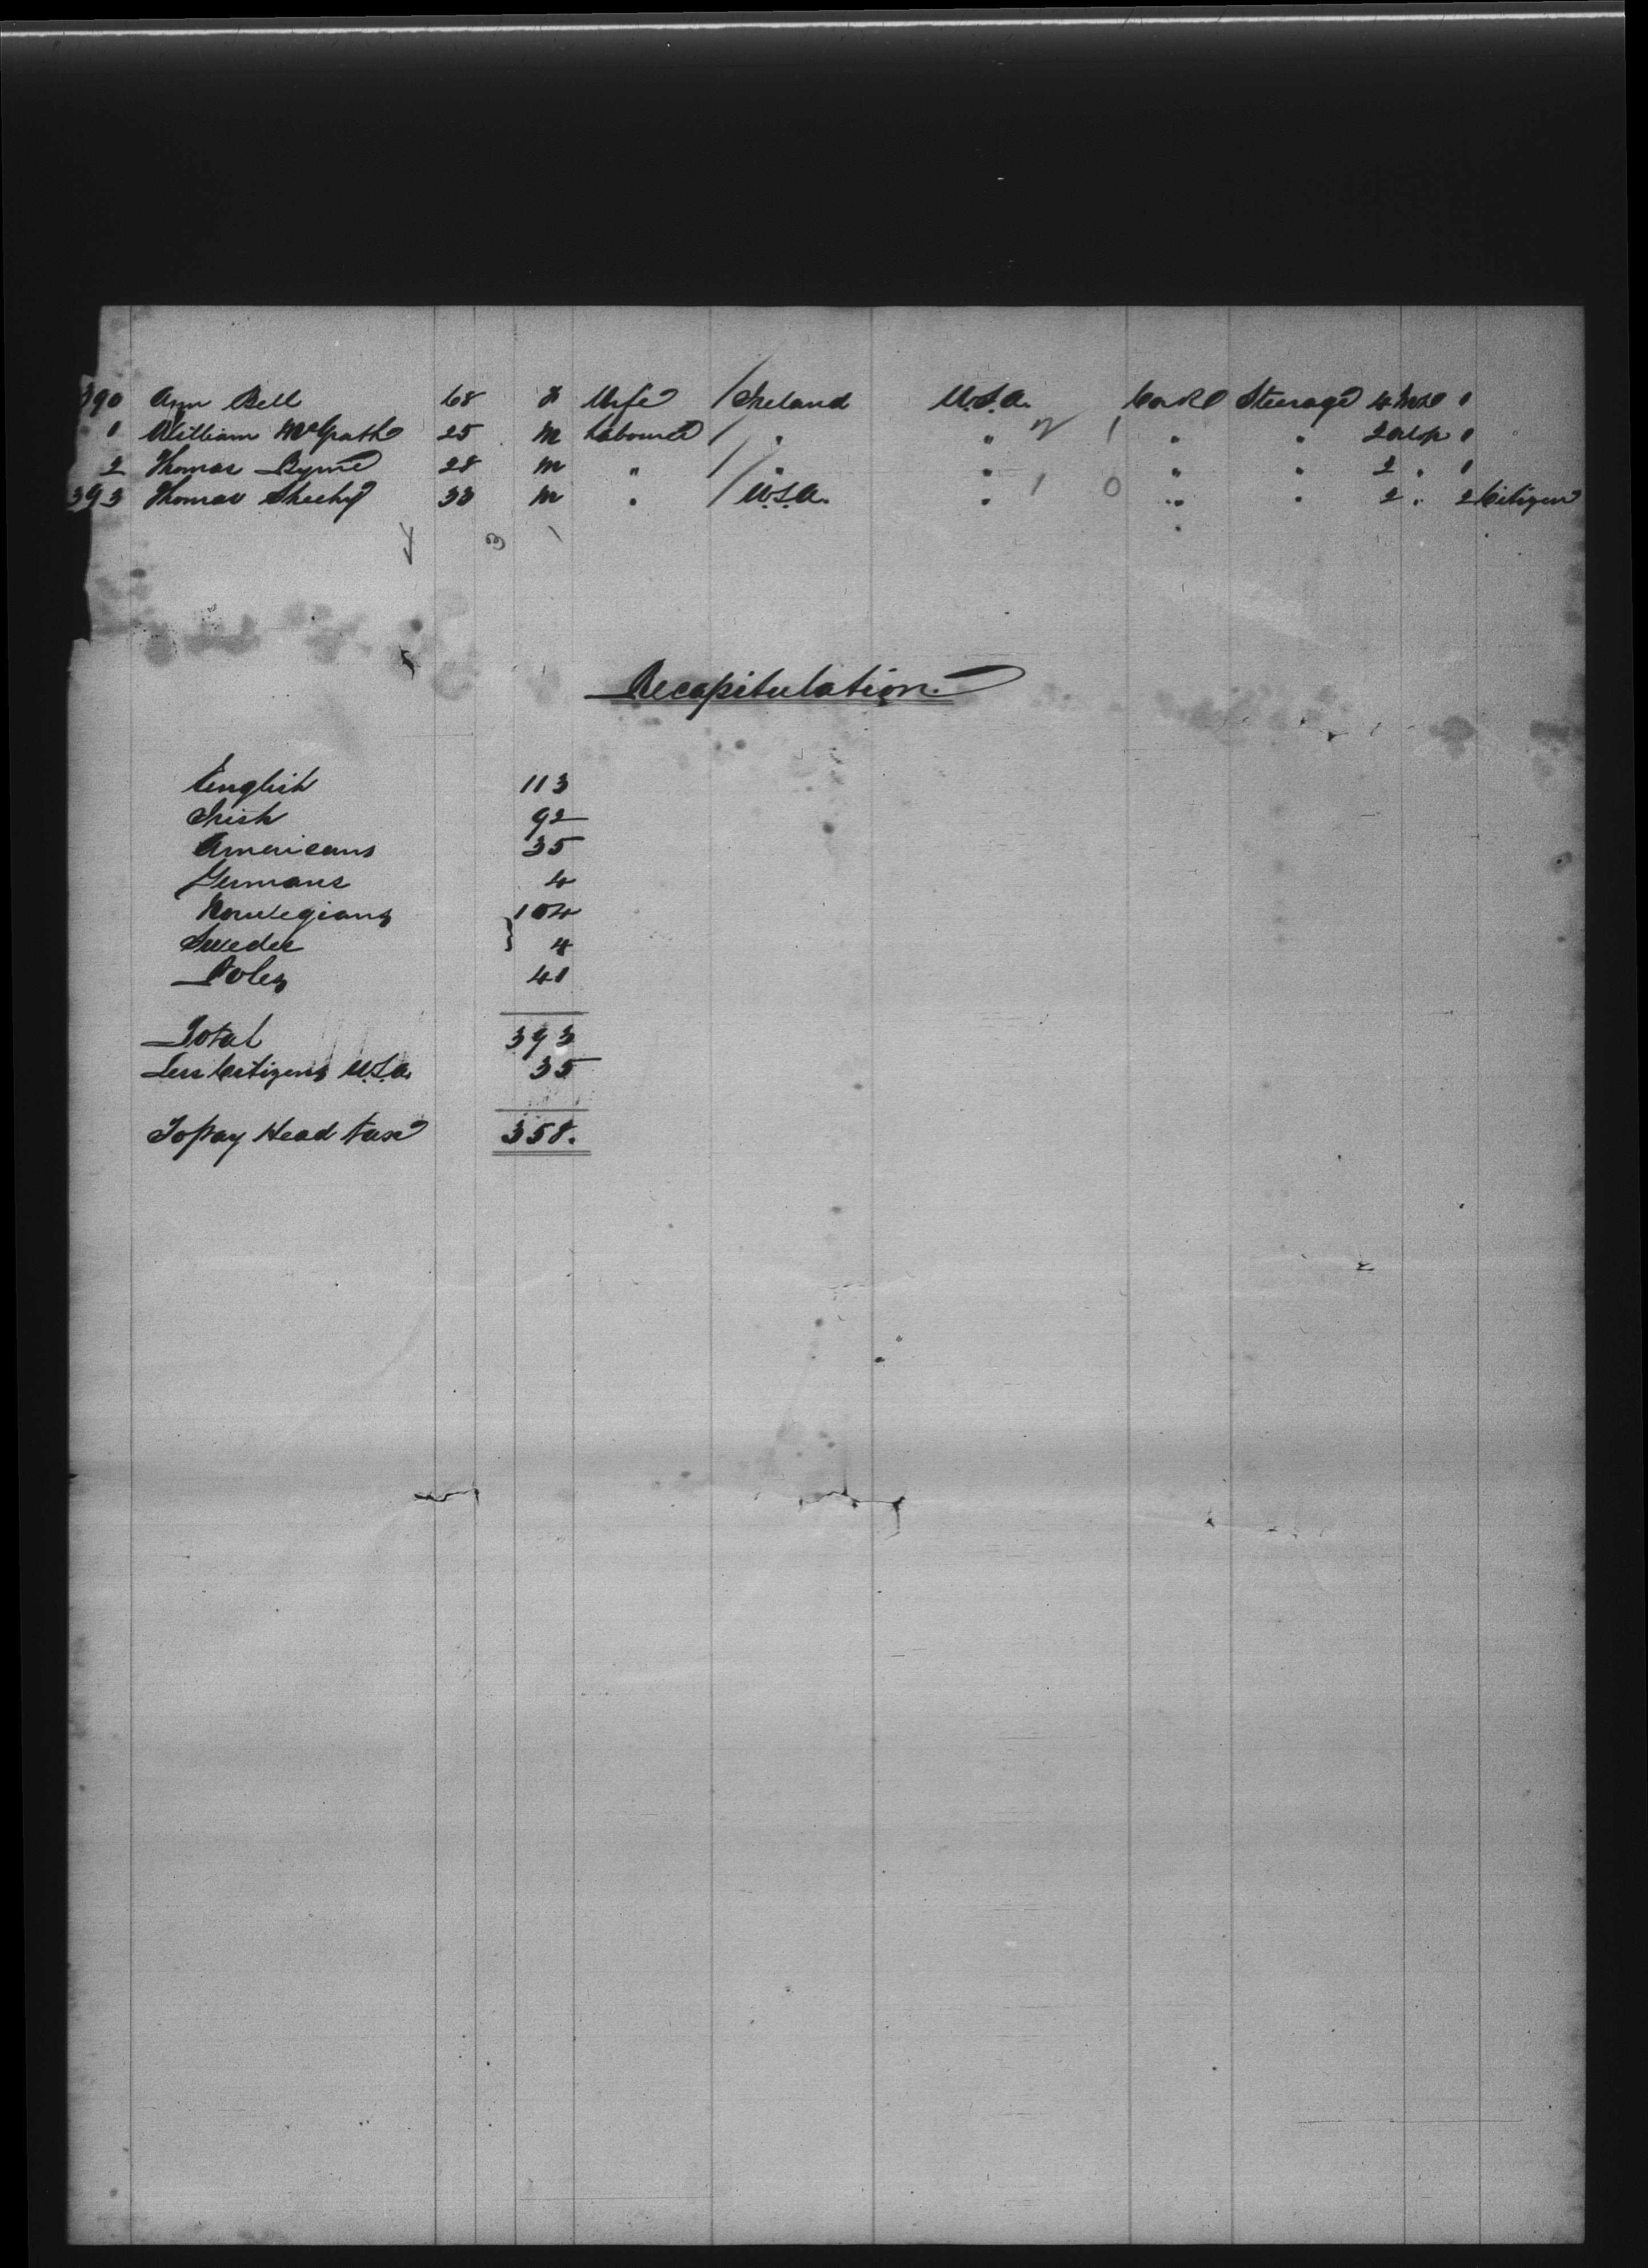 390 Ann Bell 68 F Wife / Ireland U.S.A. Cork Steerage 4 1
1 William McGrath 25 M Labourer / " " 2 1 " " 2 1
2 Thomas Byrne 28 M " / " " " " 2 " 1
393 Thomas Sheehy 33 M " / U.S.A. " 1 0 " " 2 " 2 Citizen
4 3 1
Recapitulation.
English 113
Irish 92
Americans 35
Germans 4
Norwegians 104
Swedes 4
Poles 41
Total 393
Less Citizens U.S.A. 35
To pay Head tax 358.